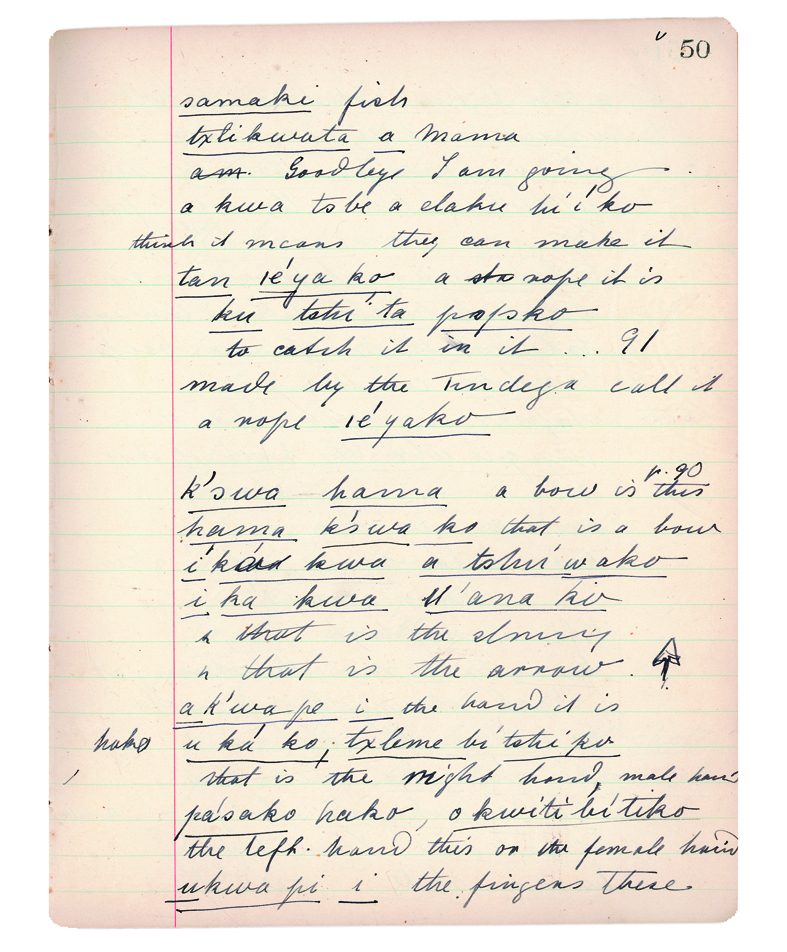 50
samaki fish
txlikwata a Mama
am. Goodbye I am going
a kwa tsbe a elaku hi'i'ko
think it means they can make it
tan ié'ya ko a rope it is
ku tshi'ta popsko
to catch it in it ... 91
made by the Tindega call it
a rope ié'yako
v. 90
k'swa hama a bow is this
hama k'swa ko that is a bow
kwa a tshu'wako
i ka kwa ll'ana ko
that is the
" that is the arrow.
a k'wa pe i the hand it is
hako u ká' ko, txleme bi'tshi'ko
that is the right hand, male hand
pa'sako hako, okwiti'bi'tiko
the left hand this or the female hand
ukwa pi i the fingers These